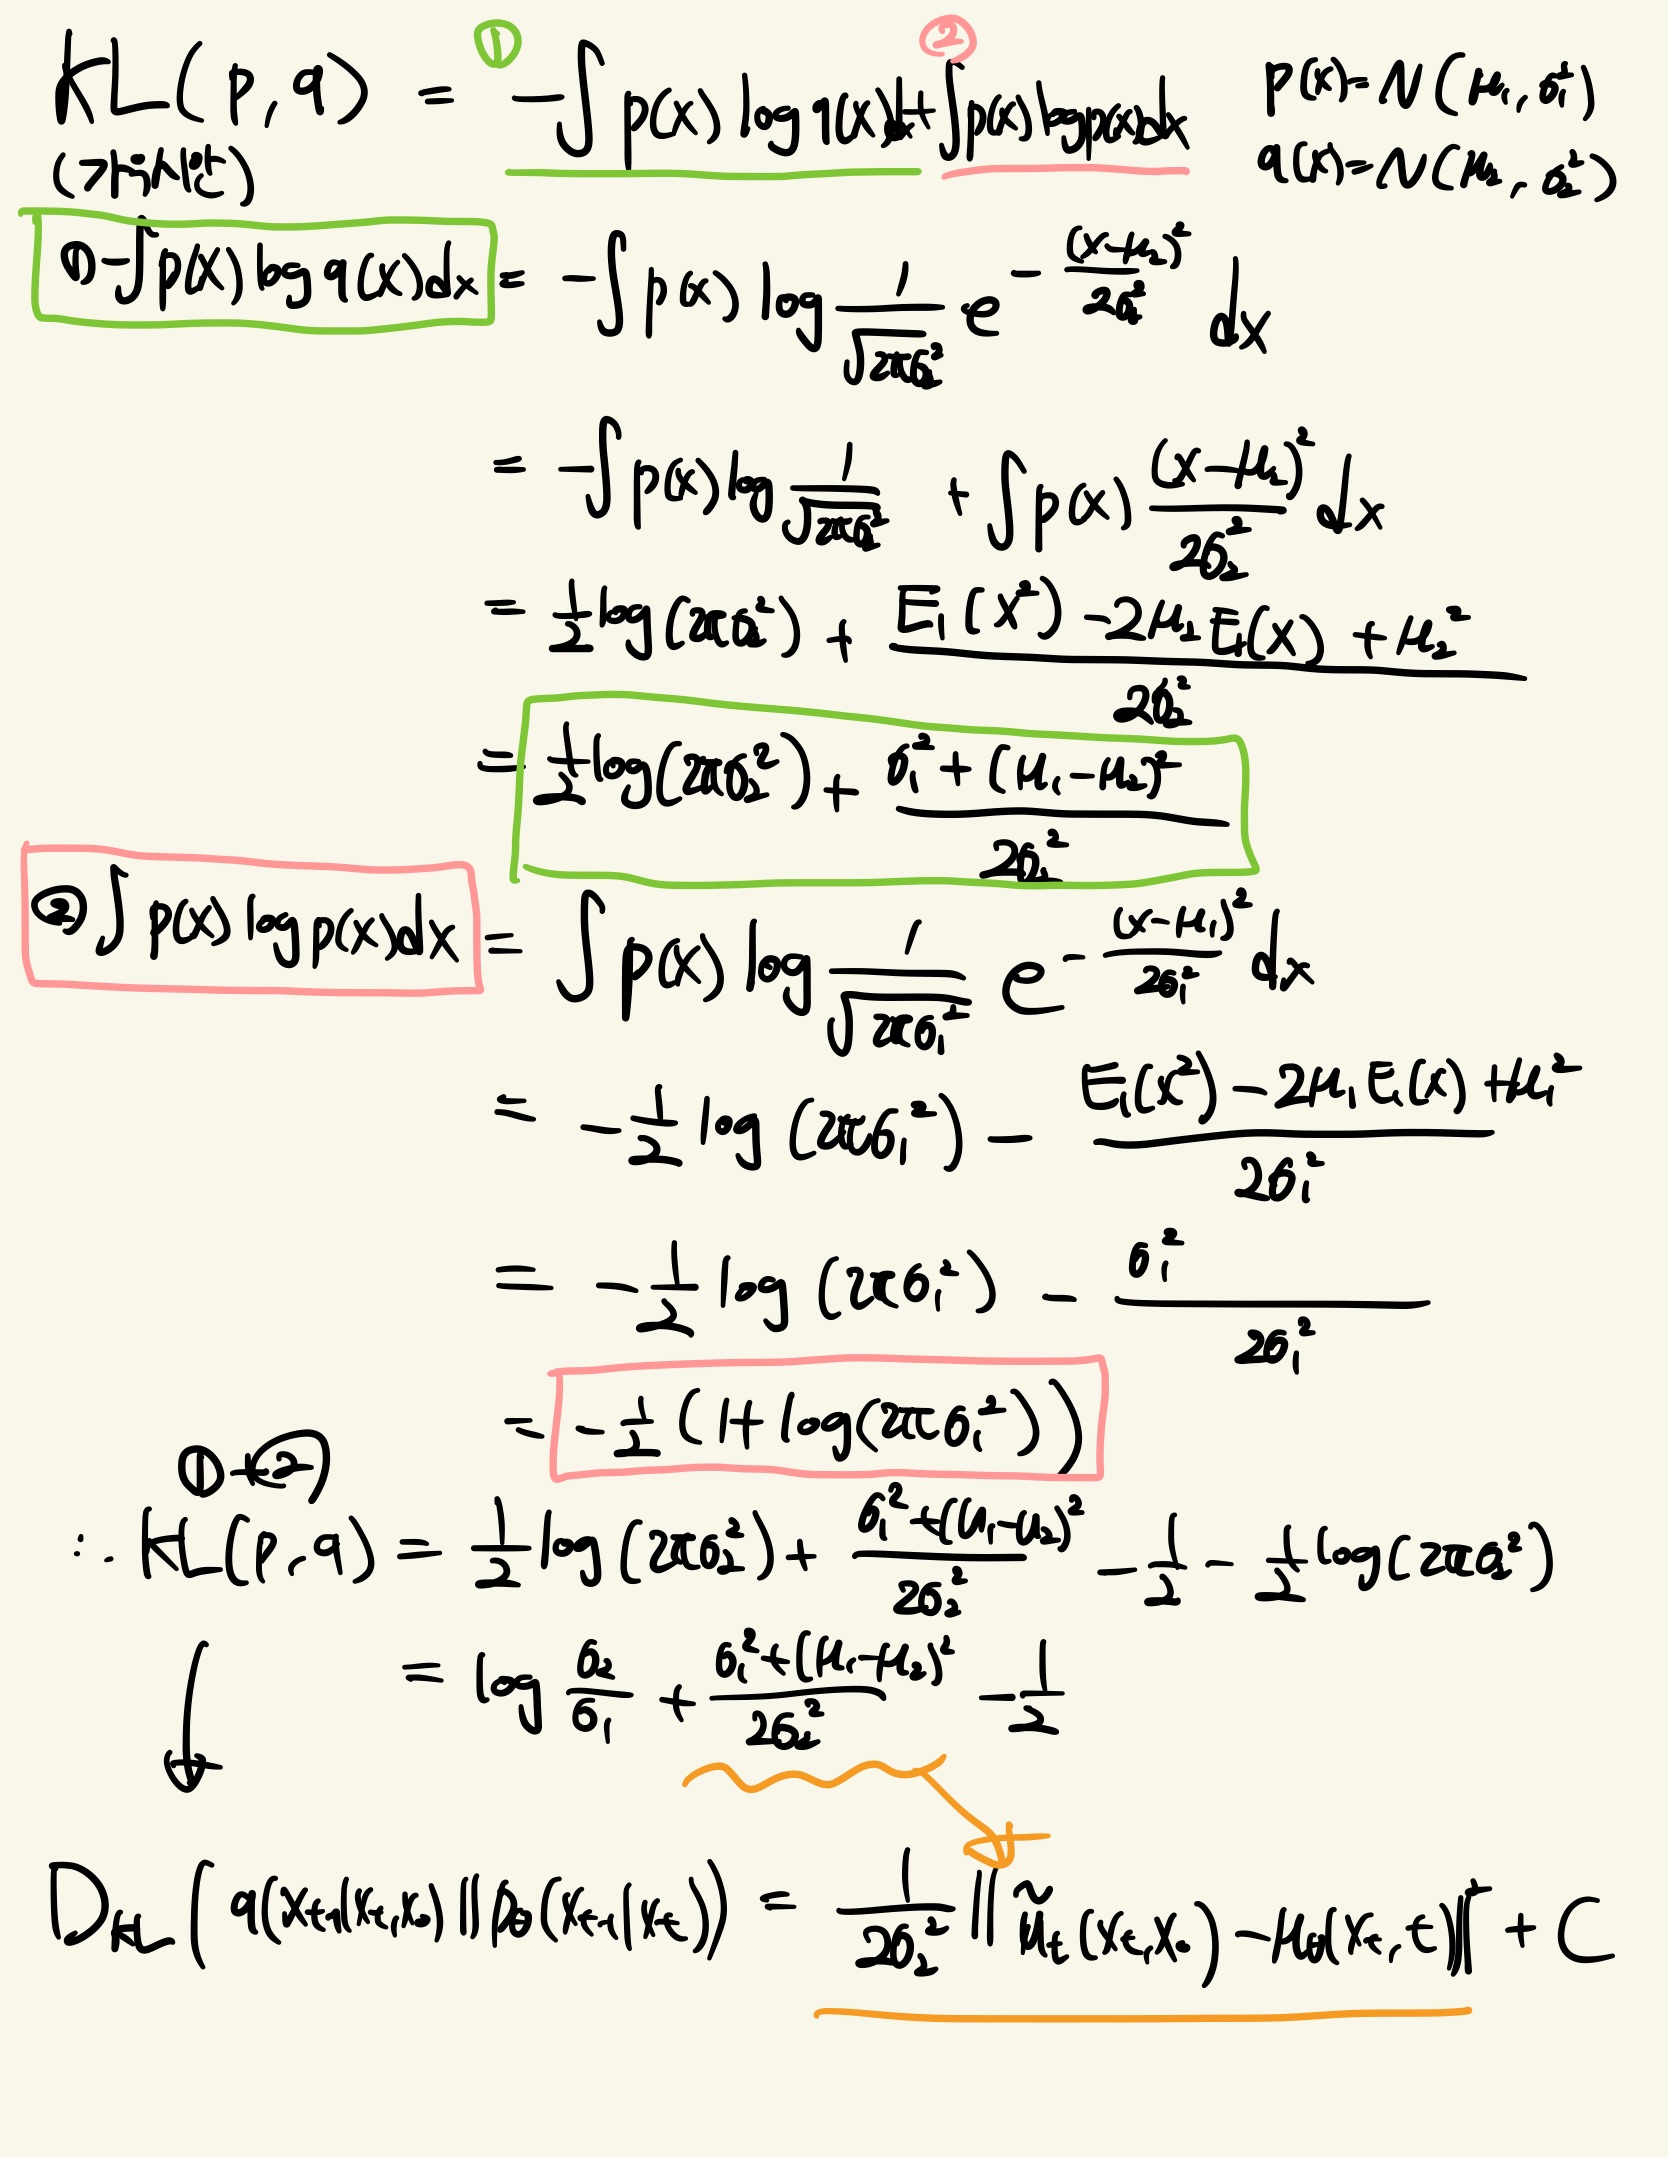 ① ②
KL(p, q) = -∫p(x) log q(x)dx + ∫p(x) log p(x)dx p(x) = N(μ₁, σ₁²)
(가우시안) q(x) = N(μ₂, σ₂²)
① -∫p(x) log q(x)dx = -∫p(x) log 1/√(2πσ₂²) e^(-(x-μ₂)²/2σ₂²) dx
= -∫p(x) log 1/√(2πσ₂²) + ∫p(x) (x-μ₂)²/2σ₂² dx
= 1/2 log(2πσ₂²) + (E₁(x²) - 2μ₂E₁(x) + μ₂²)/2σ₂²
= 1/2 log(2πσ₂²) + (σ₁² + (μ₁-μ₂)²)/2σ₂²
② ∫p(x) log p(x)dx = ∫p(x) log 1/√(2πσ₁²) e^(-(x-μ₁)²/2σ₁²) dx
= -1/2 log(2πσ₁²) - (E₁(x²) - 2μ₁E₁(x) + μ₁²)/2σ₁²
= -1/2 log(2πσ₁²) - σ₁²/2σ₁²
= -1/2 (1 + log(2πσ₁²))
①+②
∴ KL(p, q) = 1/2 log(2πσ₂²) + (σ₁² + (μ₁-μ₂)²)/2σ₂² - 1/2 - 1/2 log(2πσ₁²)
= log σ₂/σ₁ + (σ₁² + (μ₁-μ₂)²)/2σ₂² - 1/2
D_KL(q(x_{t-1}|x_t, x₀) || p_θ(x_{t-1}|x_t)) = 1/2σ₂² ||μ̃_t(x_t, x₀) - μ_θ(x_t, t)||² + C